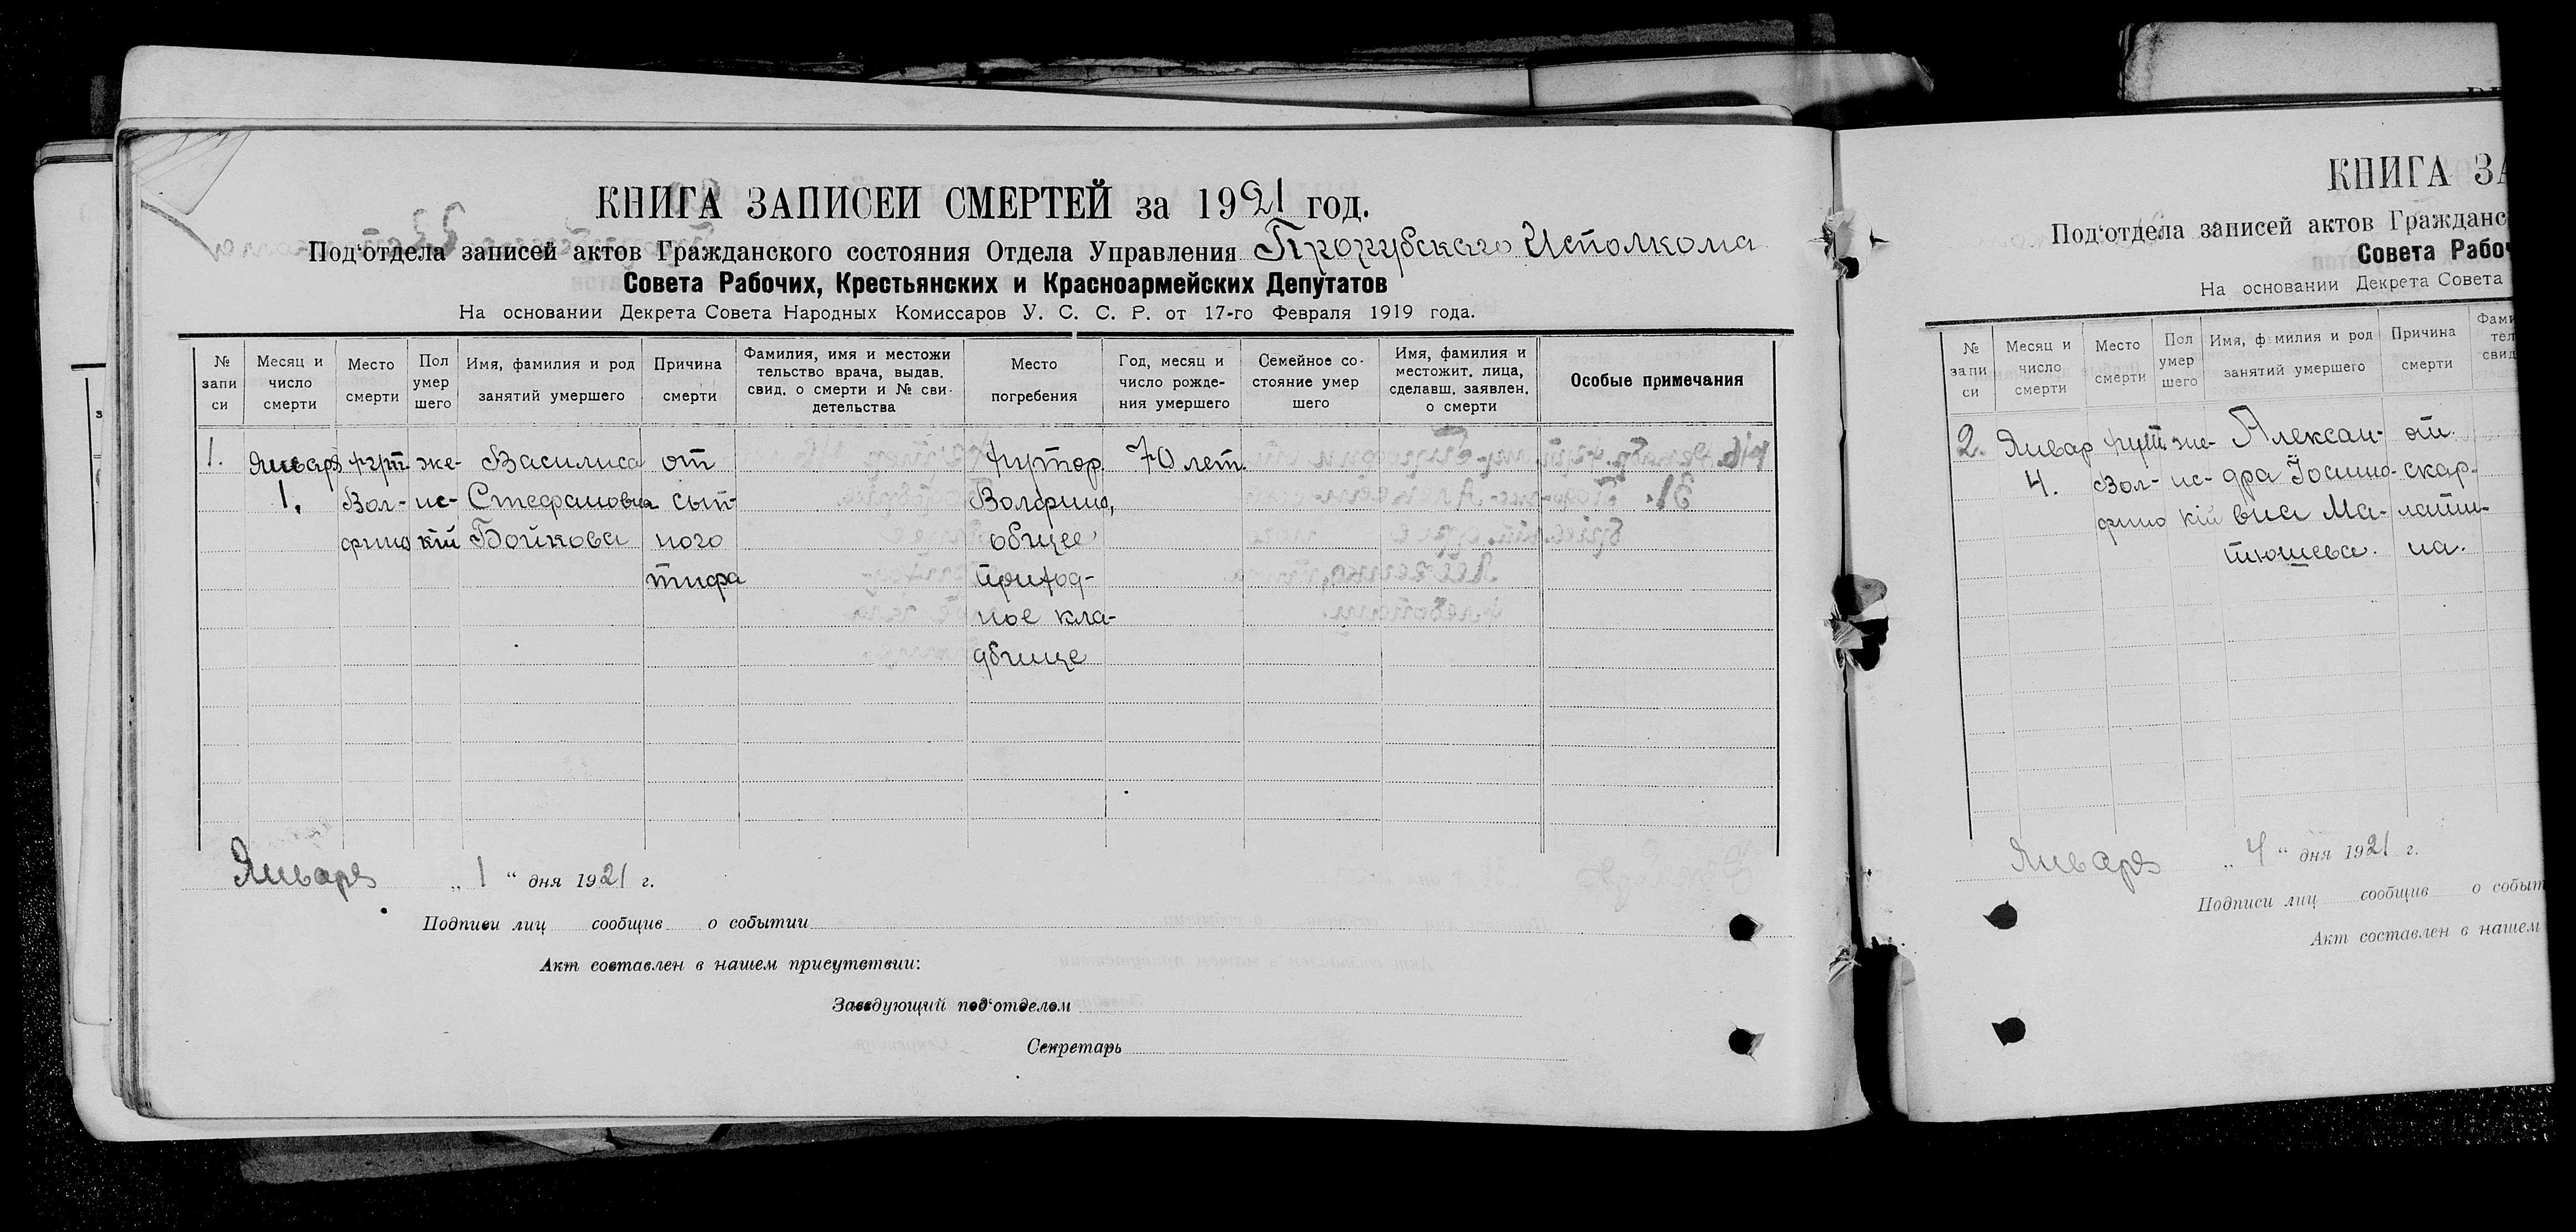 КНИГА ЗАПИСЕЙ СМЕРТЕЙ за 1921 год.
Под'отдела записей актов Гражданского состояния Отдела Управления Прорубскаго Исполкома
Совета Рабочих, Крестьянских и Красноармейских Депутатов
На основании Декрета Совета Народных Комиссаров У. С. С. Р. от 17-го Февраля 1919 года.
№ запи си
Месяц и число смерти
Место смерти
Пол умер шего
Имя, фамилия и род занятий умершего
Причина смерти
Фамилия, имя и местожи тельство врача, выдав. свид. о смерти и № сви- детельства
Место погребения
Год, месяц и число рожде- ния умершего
Семейное со- стояние умер шего
Имя, фамилия и местожит. лица, сделавш. заявлен. о смерти
Особые примечания
1. Января хут. же- Василиса от хутор. 70 лет.
1. Вол- нс- Стефановна сып- Волфино,
фино кій Бойкова ного общее
тифа приход-
ное кла-
дбище
Января „ 1 “ дня 1921 г.
Подписи лиц сообщив о событии
Акт составлен в нашем присутствии:
Заведующий под'отделом
Секретарь
КНИГА ЗА
Под'отдела записей актов Гражданс
Совета Рабоч
На основании Декрета Совета
№ запи си
Месяц и число смерти
Место смерти
Пол умер шего
Имя, фамилия и род занятий умершего
Причина смерти
Фами тел свид
2. Январ хут. же- Алексан- от
4. Вол- нс- дра Іосифо- скар-
фино кій вна Ма- латин-
тюшева. на.
Января „ 4 “ дня 1921 г.
Подписи лиц сообщив о событ
Акт составлен в нашем